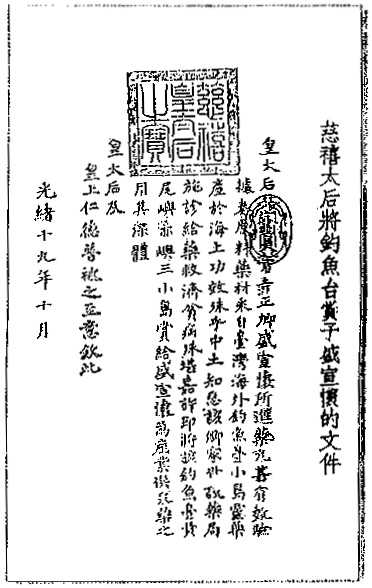 慈禧太后將釣魚台賞予盛宣懷的文件
慈禧
皇太后
之寶
皇太后寺正卿盛宣懷所進藥丸甚有效驗
據奏原料藥材來自臺灣海外釣魚臺小島靈藥
產於海上功效殊乎中土知悉該卿家世設藥局
施診給藥救濟貧病殊堪嘉許即將該釣魚臺黃
尾嶼赤嶼三小島賞給盛宣懷為產業供採藥之
用其深體
皇太后及
皇上仁德普被之至意欽此
光緒十九年十月